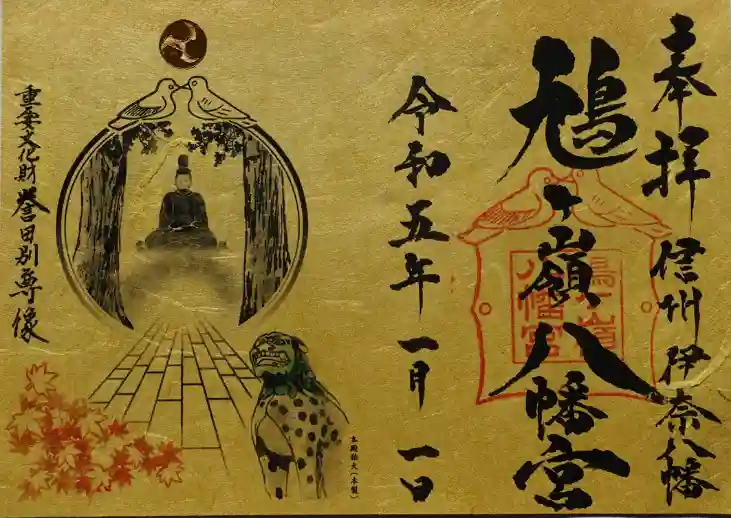 奉拝 信州伊奈八幡
鳩ヶ嶺八幡宮
鳩ヶ嶺
八幡宮
令和五年 一月 一日
重要文化財 誉田別尊像
本殿狛犬(木製)